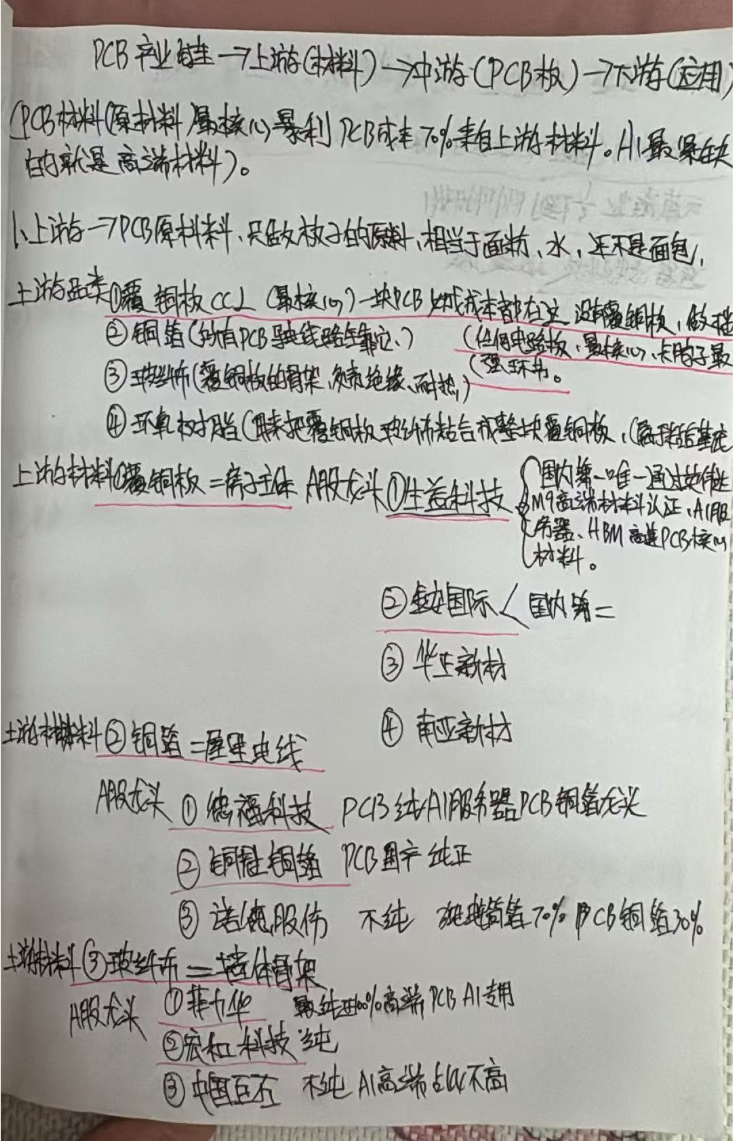 PCB产业链→上游(材料)→中游(PCB板)→下游(应用)
(PCB材料(原材料)最核心暴利 PCB成本70%来自上游材料。AI最紧缺
的就是高端材料)。
1、上游→PCB原料料、只做板子的原料,相当于面粉、水、还不是面包,
上游品类①覆铜板CCL(最核心)一块PCB 成本都在这 没有覆铜板,做不出
②铜箔(所有PCB导电线路全靠它、) (任何电路板,最核心、卡脖子最
③玻纤布(覆铜板的骨架,负责绝缘、耐热,) 强环节。
④环氧树脂(用来把覆铜板玻纤布粘合成整块覆铜板,(高端
上游材料①覆铜板=房子主体 A股龙头 ①生益科技 国内第一唯一通过英伟达
M9高端材料认证,AI服
务器、HBM高速PCB核心
材料。
②金安国际 国内第二
③华正新材
④南亚新材
上游材料②铜箔=屋里电线
A股龙头 ①德福科技 PCB纯AI服务器PCB铜箔龙头
②铜冠铜箔 PCB国产纯正
③诺德股份 不纯 锂电铜箔70% PCB铜箔30%
上游材料③玻纤布=墙体骨架
A股龙头 ①菲力华 最纯正100%高端PCB AI专用
②宏和科技 纯
③中国巨石 不纯 AI高端占比不高